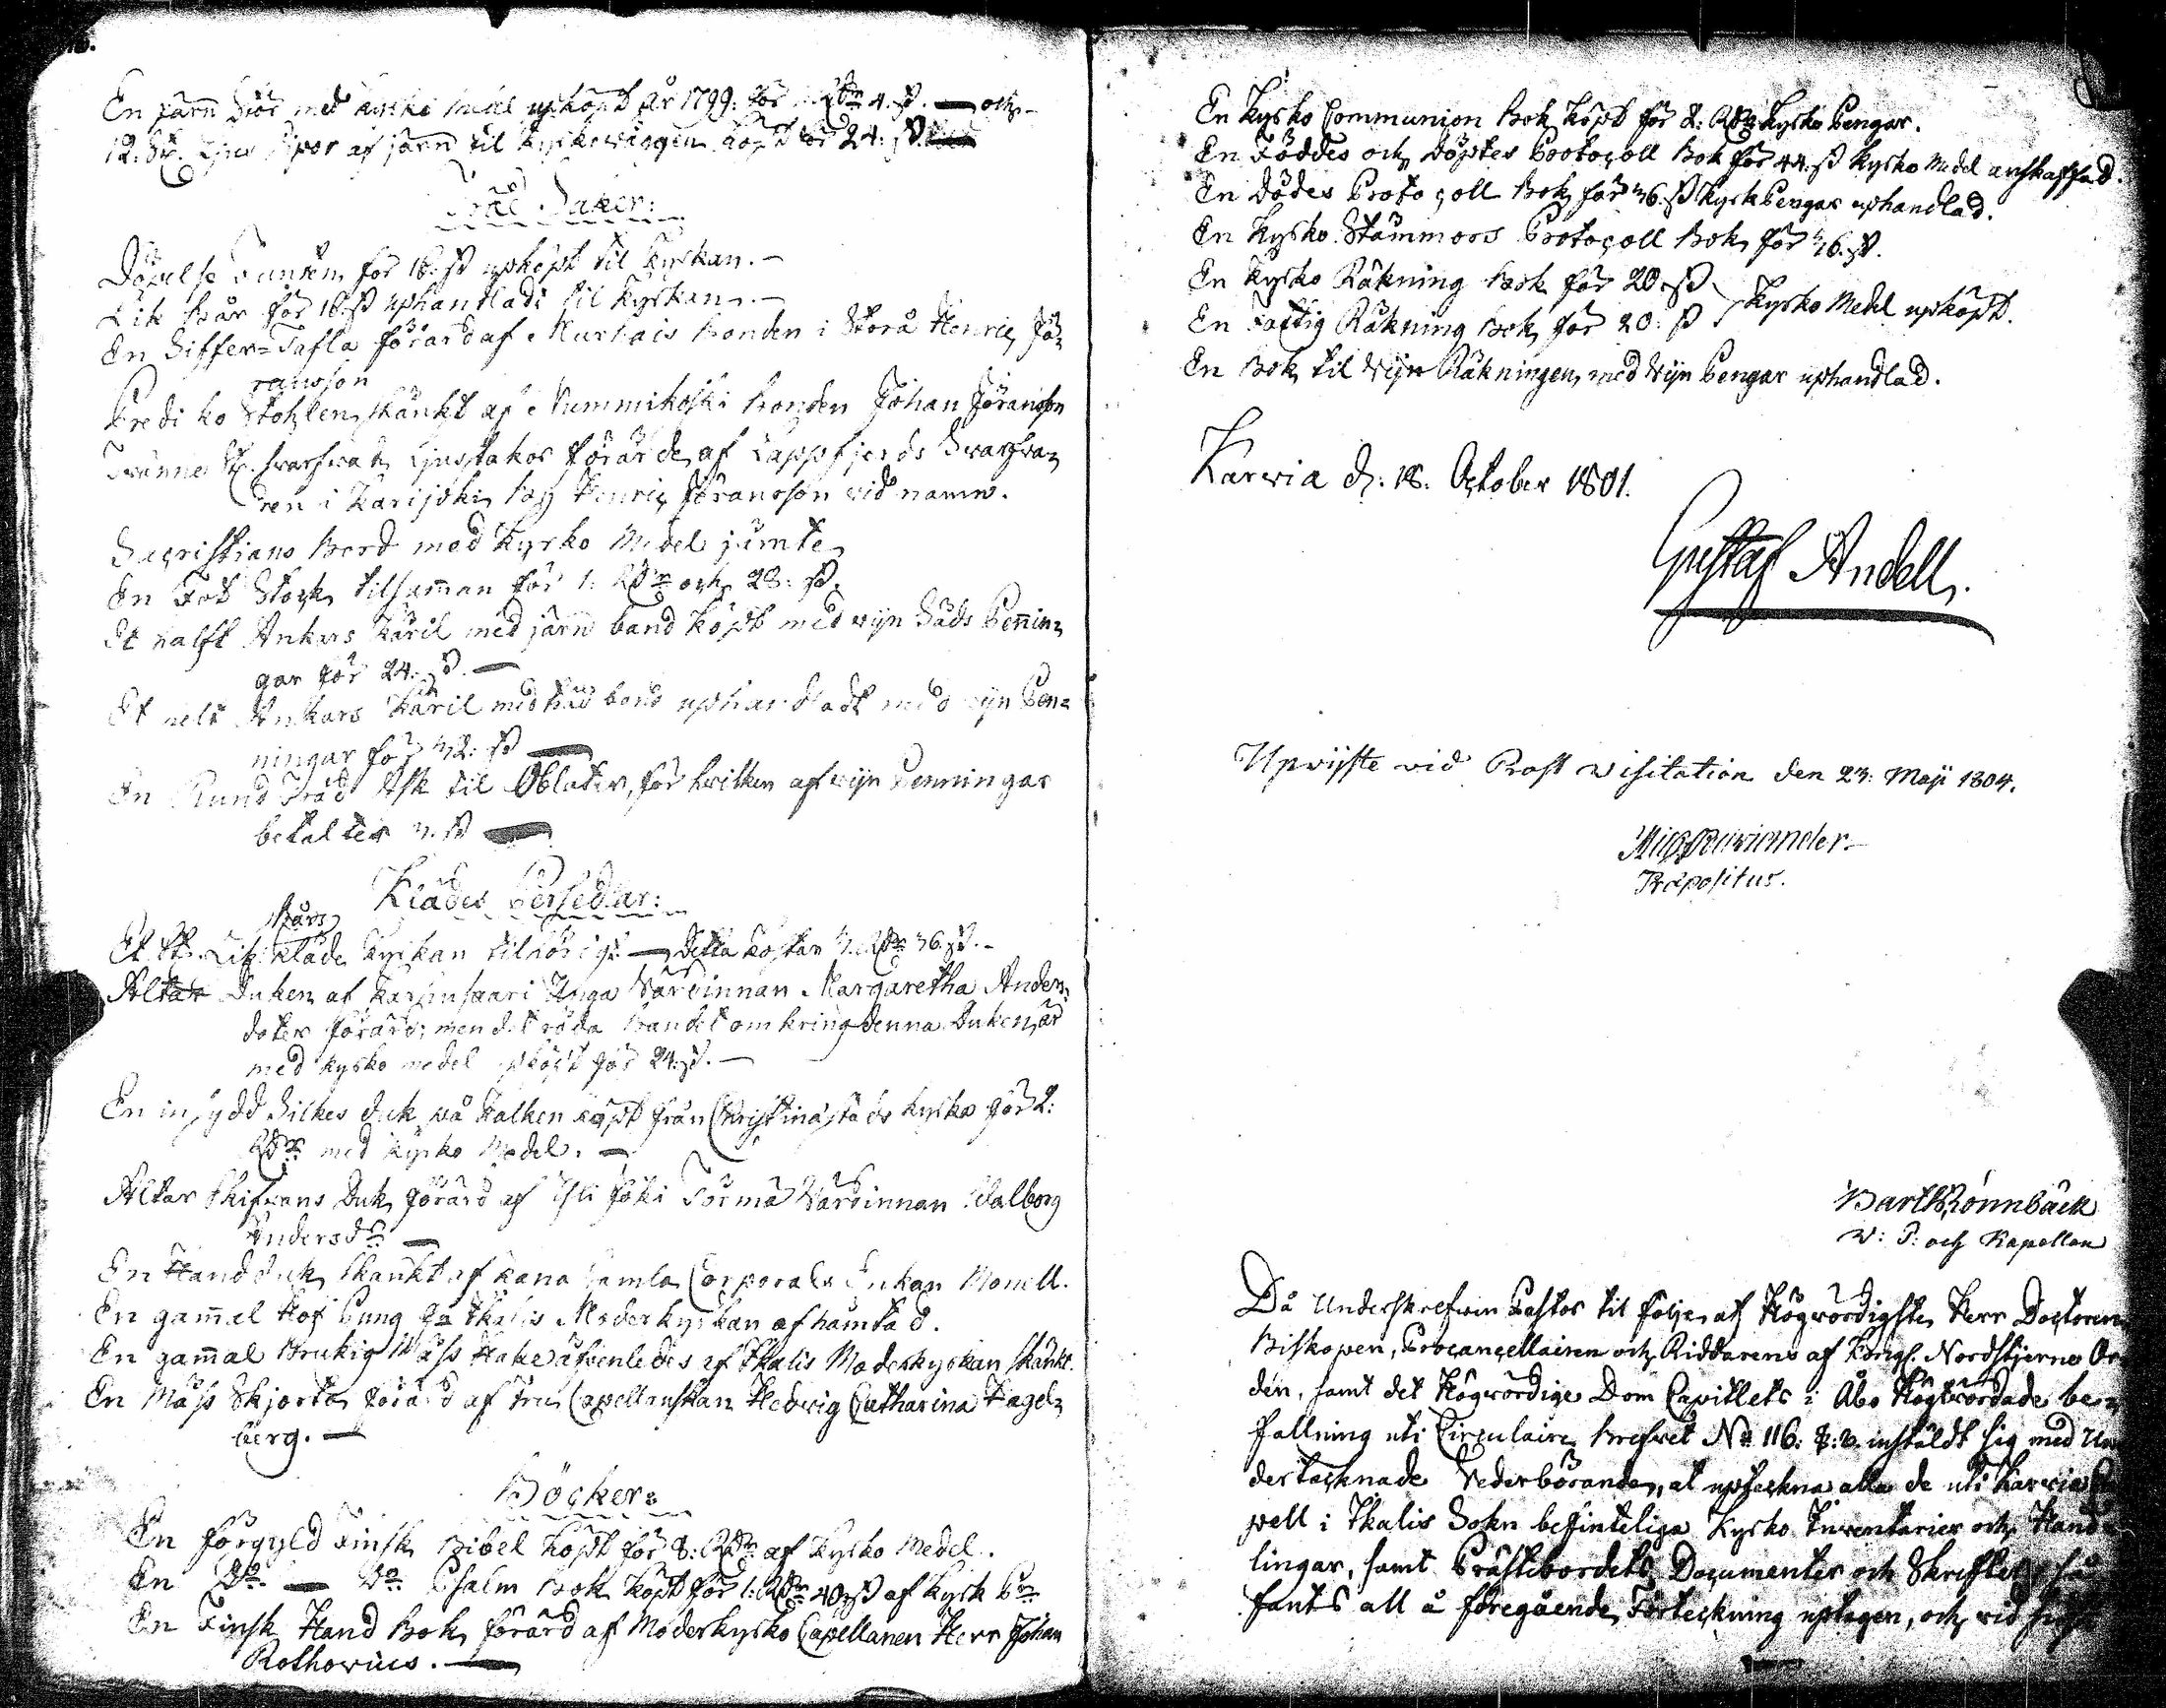 En järn Stör med kyrko medel upköpt år 1799. för Rdr 4. ß. — och
12. St. af järn til kyrkowäggen köpt för 24. ß.
Träd Saker:
Döpelse Funten för 16. ß upköpt til Kyrkan. —
Lik Bår för 16. ß uphandladt til Kyrkan. —
En Siffer-Tafla förärd af Kurkais Bonden i Storå Henric Jö-
ransson
Prediko Stohlen skänkt af Nummikoski Bonden Johan Jöransson
Twänne St. swarfwade Ljusstakar förärde af Lappfjerds Swarfwa-
ren i Karijoki by Henric Jöransson vid namn.
Sacristians Bord med Kyrko Medel jämte
En Fot Stock tilsamman för 1. Rdr och 28: ß.
Et halft Ankars Käril med järn band köpt med wijn Säds Pennin-
gar för 24. ß. —
Et helt Ankars Käril med träd band uphandladt med wijn Pen-
ningar för 32: ß —
En Rund Träd Ask til Oblater, för hwilken af wijn Penningar
betaltes 3. ß —
Klädes Persedlar:
swart
Et St. Lik kläde Kyrkan tilhörigt — detta kostar 3. Rdr 36. ß. —
Altar Duken af Karhusaari Unga Värdinnan Margaretha Anders-
doter förärd; men det röda Bandet omkring denna Duken, är
med kyrko medel upköpt för 24. ß. —
En insydd Silkes duk på Kalken köpt från Christinæstads kyrka för 2:
Rdr med kyrko Medel. —
Altar Skifwans Duk förärd af Yli Joki Törmä Värdinnan Walborg
Andersdr —
En Hand duk skänkt af Kana Gamla Corporals Enkan Monell.
En gammal Hof Pung från Ikalis Moderkyrkan afhämtad.
En gammal Brukig Mäss Hake äfwenledes af Ikalis Moderkyrkan skänkt.
En Mäss Skjorta förärd af Fru Capellanskan Hedwig Catharina Hagel-
berg. —
Böcker:
En förgyld Finsk Bibel köpt för 8: Rdr af Kyrko Medel.
En Do — Do Psalm Bok köpt för 1: Rdr 40 ß af Kyrk Pr
En Finsk Hand Bok förärd af Moderkyrko Capellanen Herr Johan
Rothovius. —
En Kyrko Communion Bok köpt för 2: Rdr Kyrko Pengar.
En Föddes och Döptes Protocoll Bok för 44. ß Kyrko Medel anskaffad.
En Dödes Protocoll Bok för 36. ß Kyrk Pengar uphandlad.
En Kyrko Stämmors Protocoll Bok för 16. ß.
En Kyrko Räkning Bok för 20. ß
En Fattig Räkning Bok för 20: ß } Kyrko Medel upköpt.
En Bok til Wijn Räkningen med Wijn Pengar uphandlad.
Karvia d: 18. October 1801.
Gustaf Andell.
Upvijste vid Prost Visitation den 23: Maji 1804.
Præpositus.
Barth Rönnbäck
V: P: och Kapellan
Då Underskrefwen Pastor til följe af Högvördigste Herr Doctoren
Biskopen, Procancellairen och Riddarens af Kongl. Nordstjerne Or
den, samt det Högvördige Dom Capitlets i Åbo Högtvördade be-
fallning uti Circulaire Brefwet No 116: instäldt sig med Un
dertecknade Vederbörande, at upteckna alla de uti Karvia Ca
pell i Ikalis Sokn befinteliga Kyrko Inventarier och Hand
lingar, samt Prästbordets Documenter och Skrifter så
fants all å föregående Förteckning uptagen, och vid